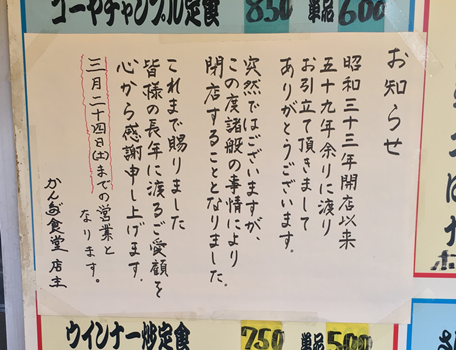 ゴーヤチャンプル定食 850 単品 600
お知らせ
昭和三十三年開店以来
五十九年余りに渡り
お引立て頂きまして
ありがとうございます。
突然ではございますが、
この度諸般の事情により
閉店することとなりました。
これまで賜りました
皆様の長年に渡るご愛顧を
心から感謝申し上げます。
三月二十四日(土)までの営業と
なります。
かんだ食堂 店主
ウインナー炒定食 750 単品 500